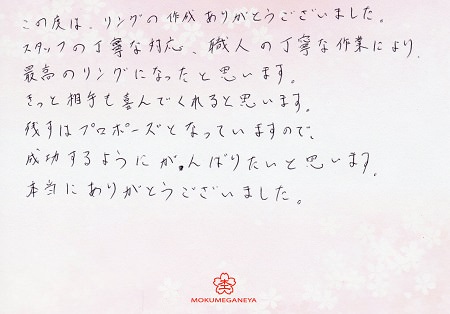 この度は、リングの作成ありがとうございました。
スタッフの丁寧な対応、職人の丁寧な作業により、
最高のリングになったと思います。
きっと相手も喜んでくれると思います。
残すはプロポーズとなっていますので、
成功するようにがんばりたいと思います。
本当にありがとうございました。
MOKUMEGANEYA